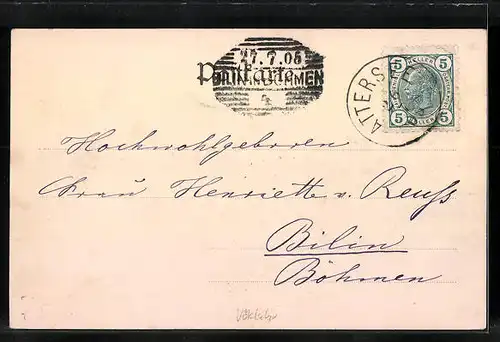 27.7.06
Postkarte
BILIN BÖHMEN
5 HELLER 5
5 HELLER 5
ATTERS
Hochwohlgeboren
Frau Henriette v. Reuss
Bilin
Böhmen